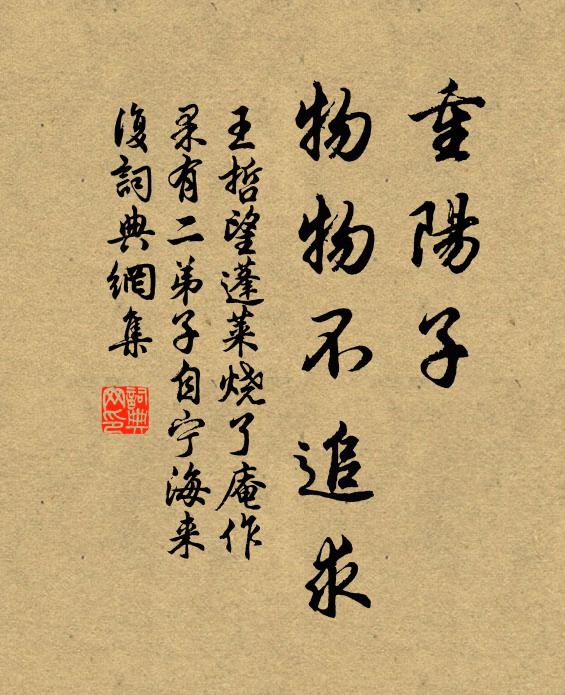 重陽子
物物不追求
王哲望蓬莱烧了庵作
果有二弟子自宁海来
復詞典網集
詞典